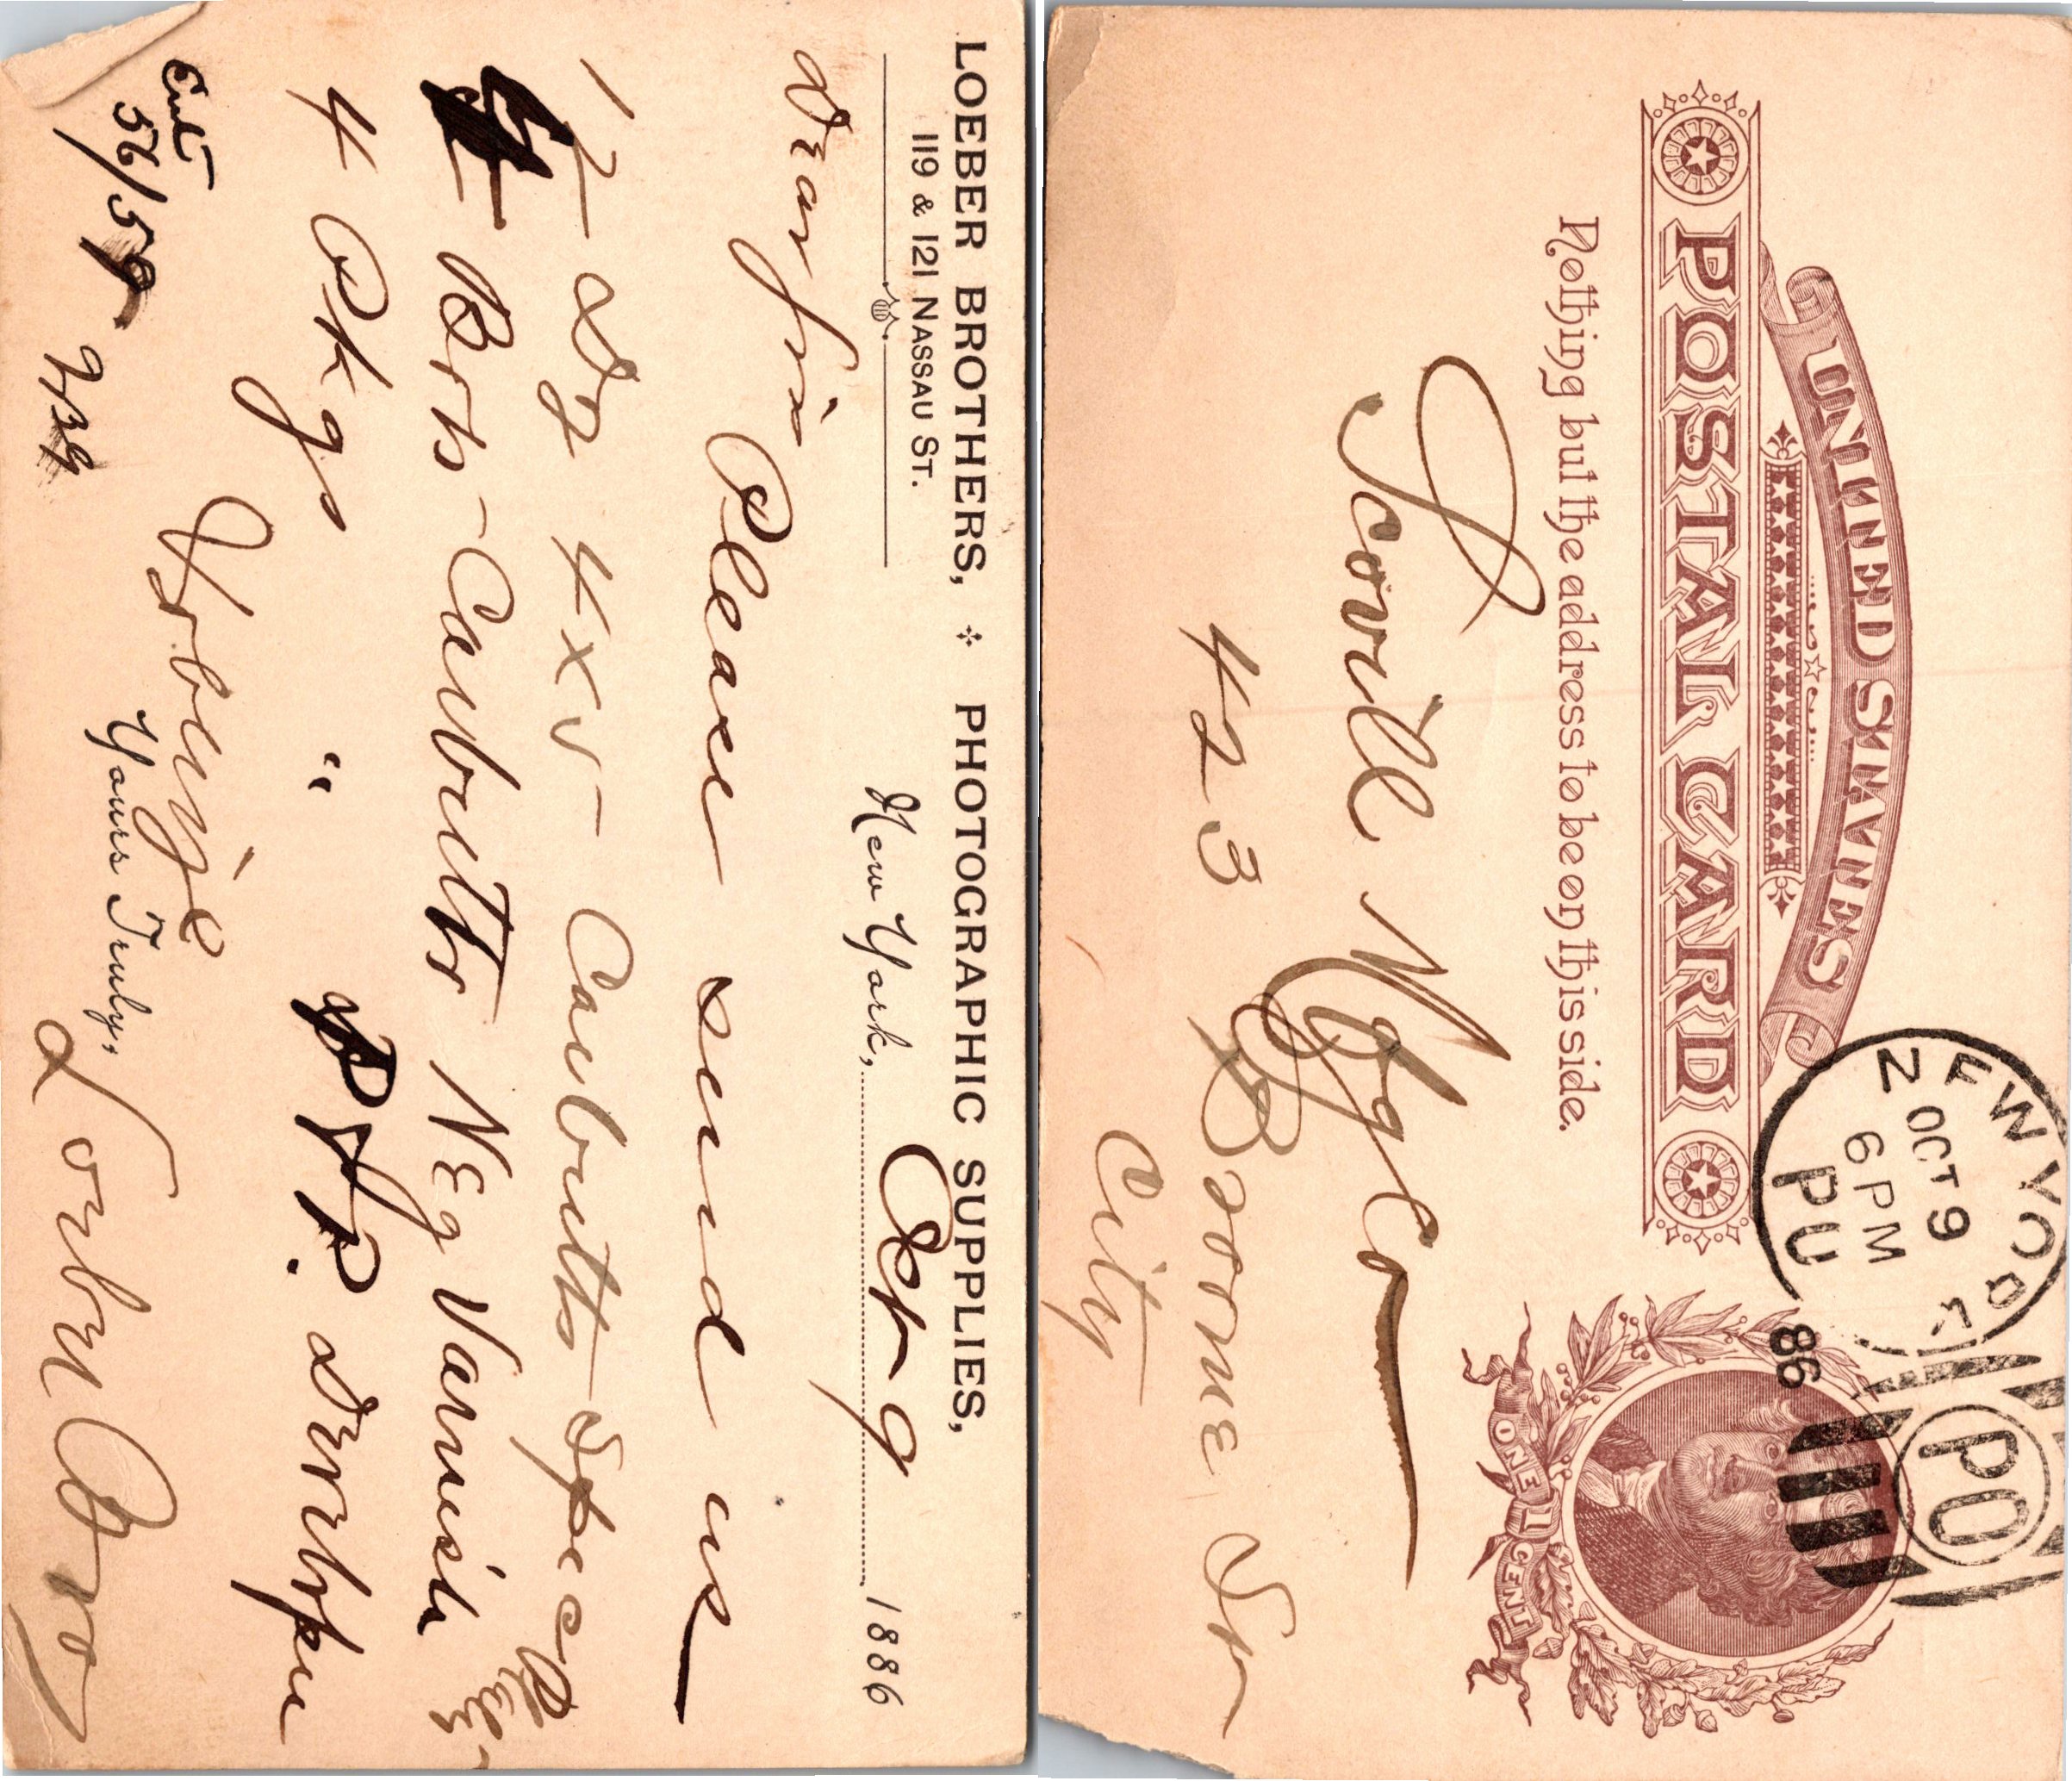 LOEBER BROTHERS, PHOTOGRAPHIC SUPPLIES,
119 & 121 NASSAU ST.
New York, Oct 9 1886
Dear Sir
Please send us
1 Dz 4x5 - Carbutts Special
4 Bots - Carbutts Neg Varnish
4 Pkgs " Developer
Yours Truly,
Loeber Bros
Ent
56/59
UNITED STATES
POSTAL CARD
Nothing but the address to be on this side.
NEW YORK
OCT 9
6 PM
PU
86
PO
ONE 1 CENT
Scovill Mfg Co
423 Broome St
City